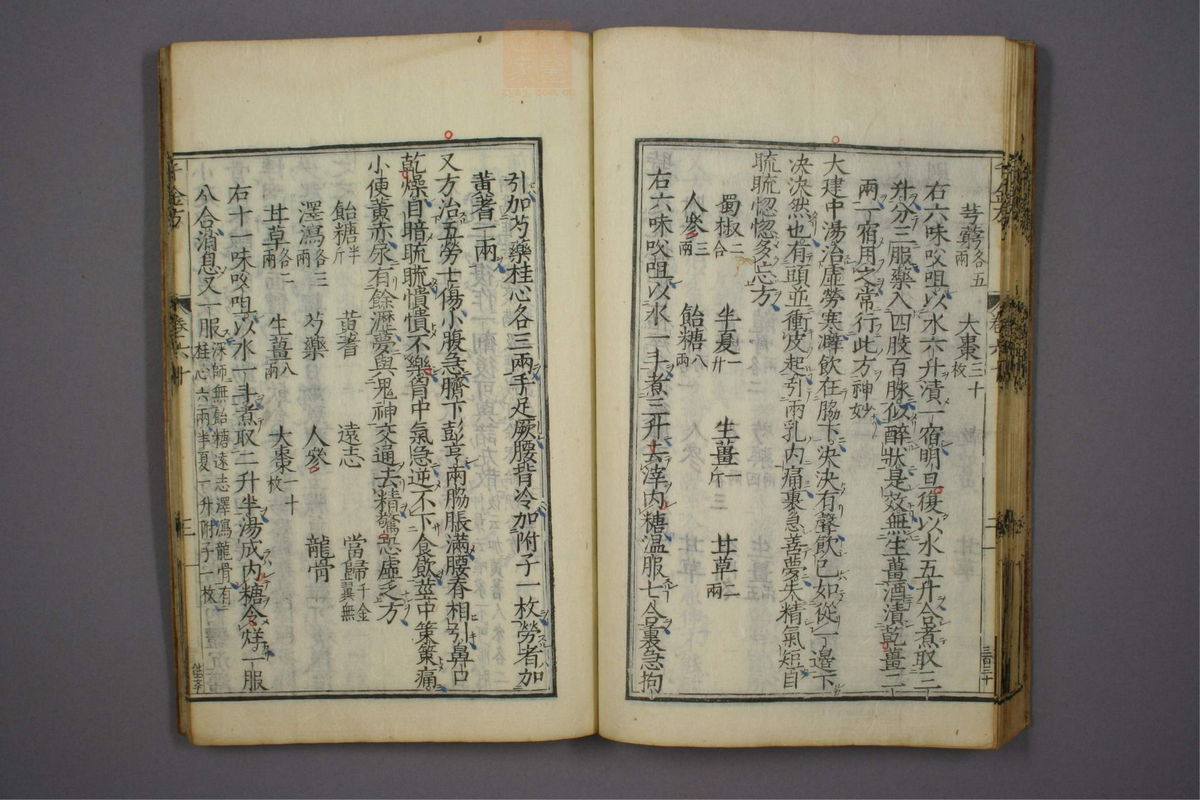 芎藭各五兩 大棗三十枚
右六味㕮咀以水六升漬一宿明旦復以水五升合煮取三
升分三服藥入四肢百脉似醉狀是效無生薑酒漬乾薑二
兩一宿用之常行此方神妙
大建中湯治虛勞寒澼飲在脇下決決有聲飲已如從一邊下
決決然也有頭並衝皮起引兩乳內痛裹急善夢失精氣短目
䀮䀮惚惚多忘方
蜀椒二合 半夏一升 生薑一斤 甘草二兩
人參三兩 飴糖八兩
右六味㕮咀以水一斗煮三升去滓內糖温服七合裏急拘
引加芍藥桂心各三兩手足厥腰背冷加附子一枚勞者加
黃耆一兩
又方治五勞七傷小腹急臍下彭亨兩脇脹滿腰脊相引鼻口
乾燥目暗䀮䀮憒憒不樂胷中氣急逆不下食飲莖中策策痛
小便黃赤尿有餘瀝夢與鬼神交通去精驚恐虛乏方
飴糖半斤 黃耆 遠志 當歸千金翼無
澤瀉各三兩 芍藥 人參 龍骨
甘草各二兩 生薑八兩 大棗二十枚
右十一味㕮咀以水一斗煮取二升半湯成內糖令烊一服
八合消息又一服深師無飴糖遠志澤瀉龍骨有
桂心六兩半夏一升附子一枚
千金方
卷六十